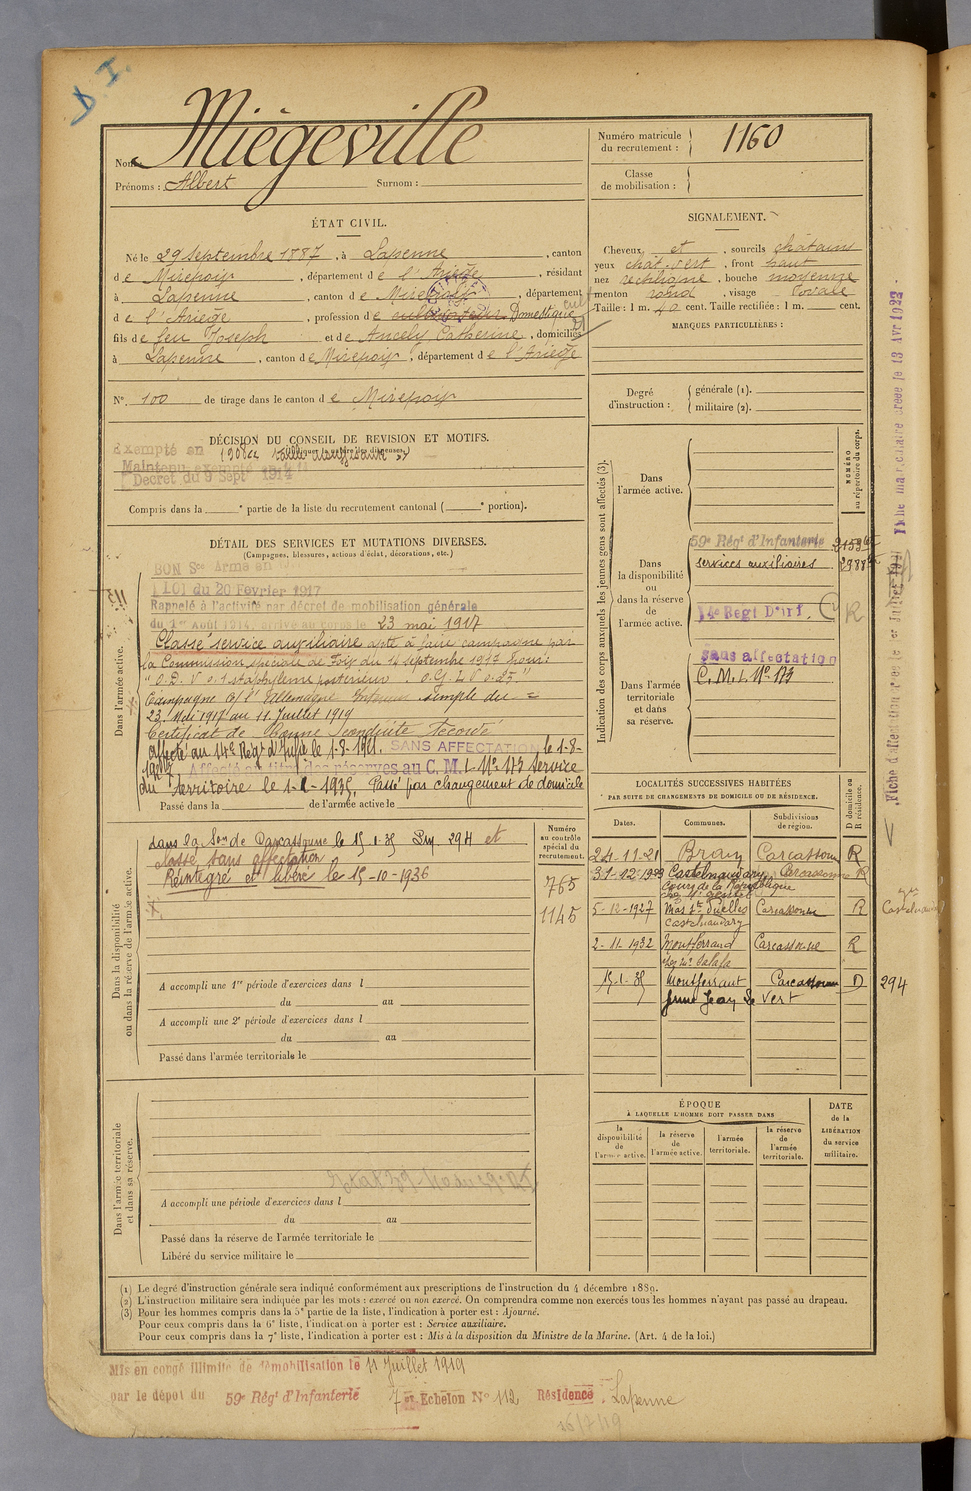 D I.
Nom: Miégeville
Prénoms : Albert Surnom :
Numéro matricule du recrutement : 1160
Classe de mobilisation :
ÉTAT CIVIL.
Né le 29 Septembre 1887, à Lapenne, canton
de Mirepoix, département de l'Ariège, résidant
à Lapenne, canton de Mirepoix, département
de l'Ariège, profession de cultivateur Domestique
fils de feu Joseph et de Ancely Catherine, domiciliés
à Lapenne, canton de Mirepoix, département de l'Ariège
N°. 100 de tirage dans le canton de Mirepoix
SIGNALEMENT.
Cheveux et, sourcils châtains
yeux chat. vert, front haut
nez rectiligne, bouche moyenne
menton rond, visage ovale
Taille : 1 m. cent. Taille rectifiée : 1 m. cent.
MARQUES PARTICULIÈRES :
Degré d'instruction : générale (1).
militaire (2).
DÉCISION DU CONSEIL DE REVISION ET MOTIFS.
Exempté en 1908
Maintenu exempté
Décret du 9 Sept 1914
Compris dans la e partie de la liste du recrutement cantonal ( e portion).
DÉTAIL DES SERVICES ET MUTATIONS DIVERSES.
(Campagnes, blessures, actions d'éclat, décorations, etc.)
Dans l'armée active.
BON Sce Armé en
LOI du 20 Février 1917
Rappelé à l'activité par décret de mobilisation générale
du 1er Août 1914, arrivé au corps le 23 mai 1917
Classé service auxiliaire apte à faire campagne par
la Commission spéciale de Foix du 14 septembre 1917 pour:
Campagne c/ l'Allemagne Intérieur simple du
23 Mai 1917 au 11 Juillet 1919
Certificat de Bonne Conduite Accordé
Affecté au 14e Régt d'Infie le 1-8-1921. SANS AFFECTATION le 1-8-
Affecté au titre des réserves au C. M. I. N° 173 Service
du Territoire le 1935. Passé par changement de domicile
Passé dans la de l'armée active le
Dans la disponibilité ou dans la réserve de l'armée active.
dans la Son de Carcassonne le 15.1.35 294 et
classé sans affectation
Réintégré et libéré le 15-10-1936
Numéro au contrôle spécial du recrutement.
765
1145
A accompli une 1re période d'exercices dans l
du au
A accompli une 2e période d'exercices dans l
du au
Passé dans l'armée territoriale le
Dans l'armée territoriale et dans sa réserve.
A accompli une période d'exercices dans l
du au
Passé dans la réserve de l'armée territoriale le
Libéré du service militaire le
Indication des corps auxquels les jeunes gens sont affectés (3).
NUMÉRO au répertoire du corps.
Dans l'armée active.
Dans la disponibilité ou dans la réserve de l'armée active.
59e Régt d'Infanterie
services auxiliaires
14e Regt D'Inf. R
Dans l'armée territoriale et dans sa réserve.
sans affectation
C. M. I. N° 173
LOCALITÉS SUCCESSIVES HABITÉES
PAR SUITE DE CHANGEMENTS DE DOMICILE OU DE RÉSIDENCE.
Dates. Communes. Subdivisions de région. D domicile ou R résidence.
24-11-21 Bram Carcassonne R
31-12-1923 Castelnaudary Carcassonne R
Cours de la République
5-12-1927 Mas Stes Puelles Carcassonne R
Castelnaudary
2-11-1932 Montferrand Carcassonne R
15-1-35 Montferrant Carcassonne D 294
ferme Jean Le Vert
ÉPOQUE
À LAQUELLE L'HOMME DOIT PASSER DANS
la disponibilité de l'armée active.
la réserve de l'armée active.
l'armée territoriale.
la réserve de l'armée territoriale.
DATE de la LIBÉRATION du service militaire.
(1) Le degré d'instruction générale sera indiqué conformément aux prescriptions de l'instruction du 4 décembre 1889.
(2) L'instruction militaire sera indiquée par les mots : exercé ou non exercé. On comprendra comme non exercés tous les hommes n'ayant pas passé au drapeau.
(3) Pour les hommes compris dans la 5e partie de la liste, l'indication à porter est : Ajourné.
Pour ceux compris dans la 6e liste, l'indication à porter est : Service auxiliaire.
Pour ceux compris dans la 7e liste, l'indication à porter est : Mis à la disposition du Ministre de la Marine. (Art. 4 de la loi.)
Mis en congé illimité de démobilisation le 11 Juillet 1919
par le dépot du 59e Régt d'Infanterie 7e Echelon N° 112 Résidence : Lapenne
16/7/19
Fiche matriculaire créée le 13 Avr 1923.